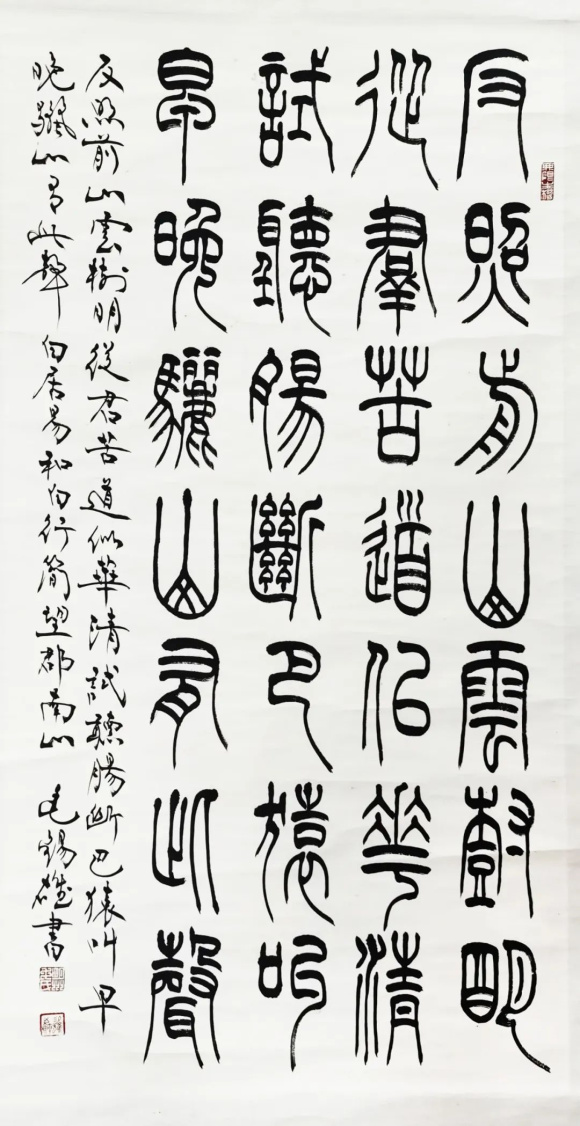 反照前山雲樹明
從羣苦道似華清
試聽腸斷巴猿叫
早晚驪山有此聲
反照前山雲樹明從君苦道似華清試聽腸斷巴猿叫早
晚驪山有此聲 白居易和白行簡望郡南山 毛錫雄書